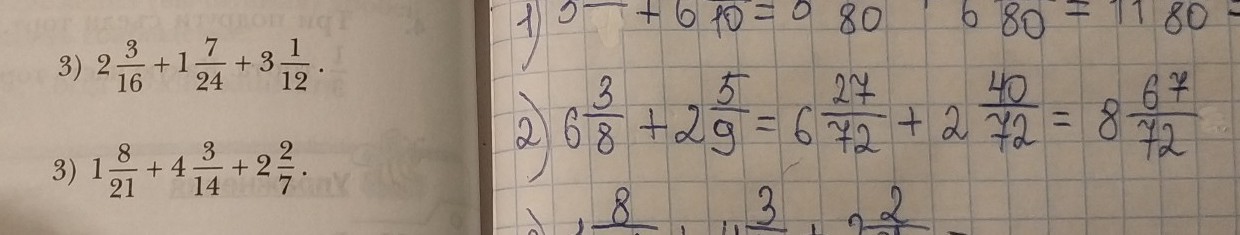 3) 2 3/16 + 1 7/24 + 3 1/12.
3) 1 8/21 + 4 3/14 + 2 2/7.
1) + 6 /10 = 80 6 80 = 11 80 =
2) 6 3/8 + 2 5/9 = 6 27/72 + 2 40/72 = 8 67/72
8 3 2